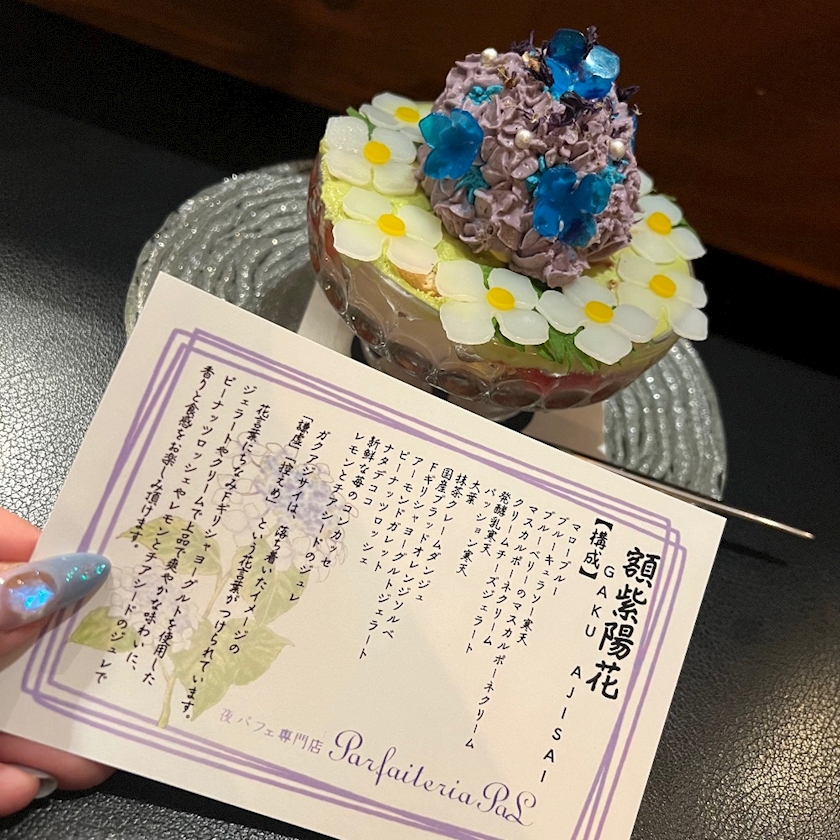 額紫陽花
GAKU AJISAI
【構成】
マローブルー
ブルーキュラソー寒天
ブルーベリーのマスカルポーネクリーム
マスカルポーネクリーム
クリームチーズジェラート
発酵乳寒天
パッション寒天
大葉
抹茶クレームダンジュ
国産ブラッドオレンジソルベ
Fギリシャヨーグルトジェラート
アーモンドガレット
ピーナッツロッシェ
ナタデココ
新鮮な苺のコンカッセ
レモンとチアシードのジュレ
ガクアジサイは、落ち着いたイメージの
「謙虚」「控えめ」という花言葉がつけられています。
花言葉にちなみFギリシャヨーグルトを使用した
ジェラートやクリームで上品で爽やかな味わいに、
ピーナッツロッシェやレモンとチアシードのジュレで
香りと食感をお楽しみ頂けます。
夜パフェ専門店 Parfaiteria PaL